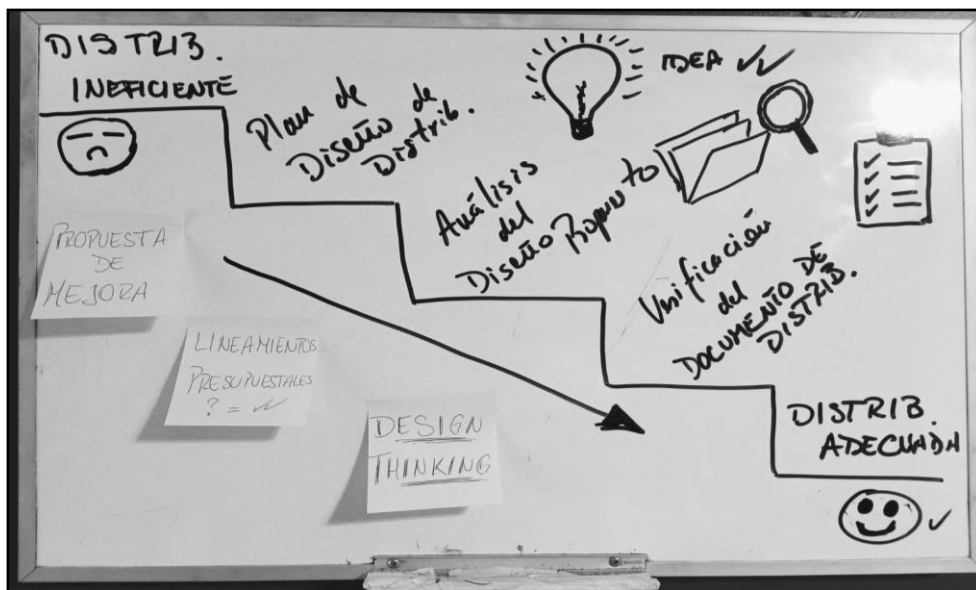 DISTRIB.
INEFICIENTE
Plan de
Diseño de
Distrib.
IDEA
Análisis
del
Diseño Propuesto
Verificación
del
DOCUMENTO DE
DISTRIB.
DISTRIB.
ADECUADA
PROPUESTA
DE
MEJORA
LINEAMIENTOS
PRESUPUESTALES
? = ✓✓
DESIGN
THINKING